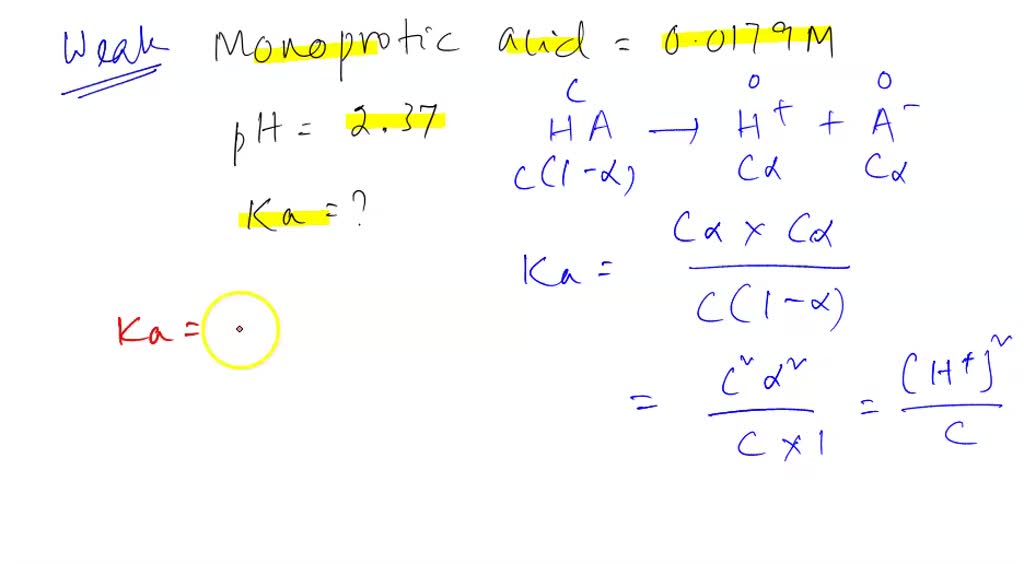 Weak Monoprotic acid = 0.0179 M
pH = 2.37
Ka = ?
C O O
HA → H⁺ + A⁻
C(1-α) Cα Cα
Ka = Cα × Cα / C(1-α)
= C²α² / C × 1 = [H⁺]² / C
Ka =